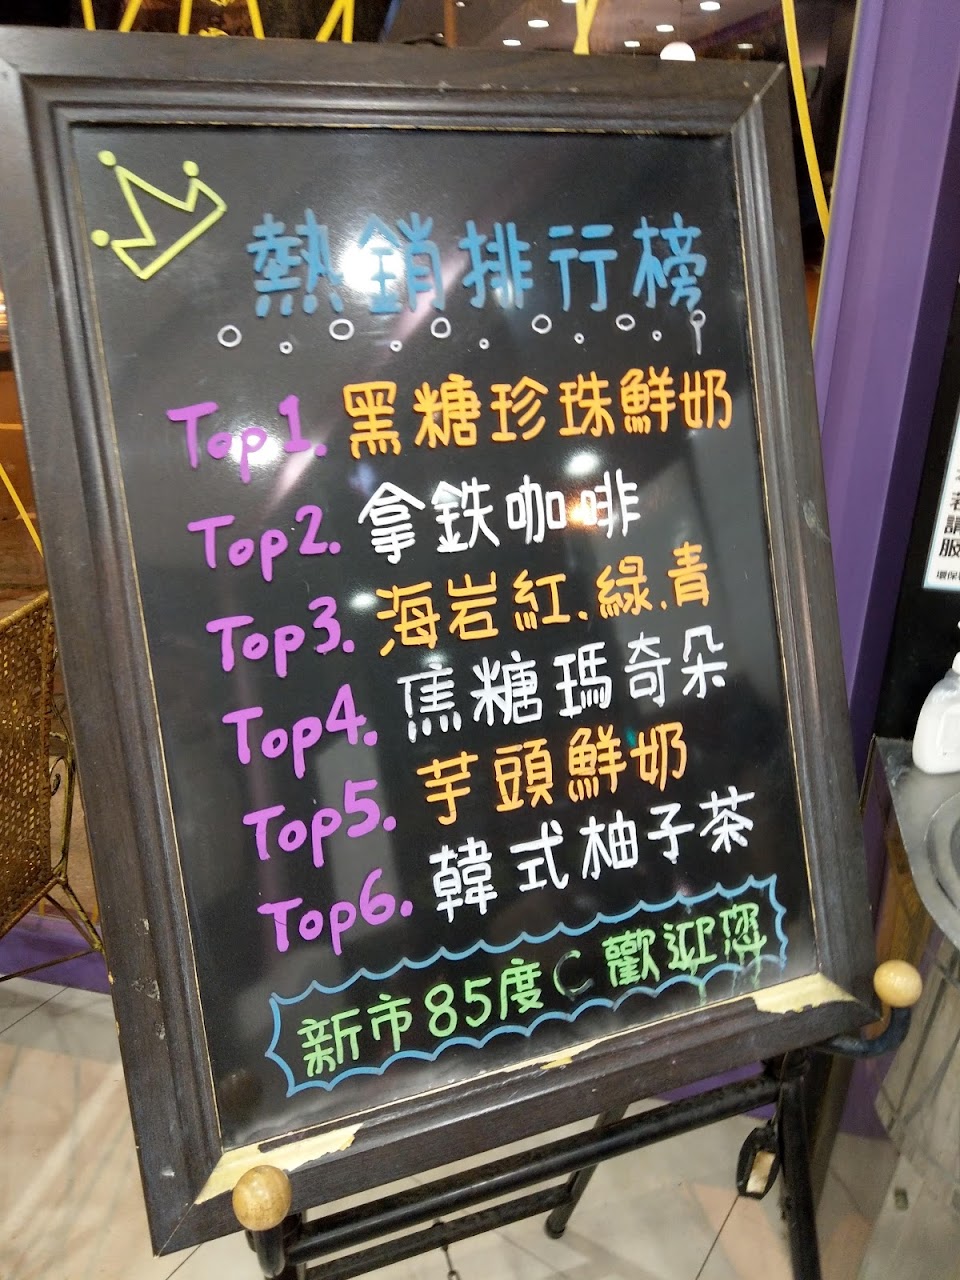 熱銷排行榜
Top1. 黑糖珍珠鮮奶
Top2. 拿鉄咖啡
Top3. 海岩紅.綠.青
Top4. 焦糖瑪奇朵
Top5. 芋頭鮮奶
Top6. 韓式柚子茶
新市85度C歡迎您
請
服
環保